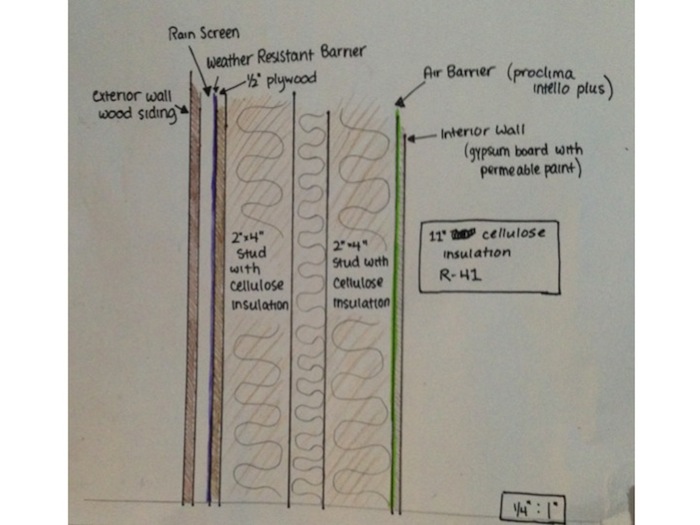 Rain Screen
Weather Resistant Barrier
1/2" plywood
Exterior wall
wood siding
Air Barrier (proclima
intello plus)
Interior Wall
(gypsum board with
permeable paint)
2"x4"
Stud
with
Cellulose
Insulation
2"x4"
Stud with
Cellulose
Insulation
11" cellulose
insulation
R-41
1/4" : 1"